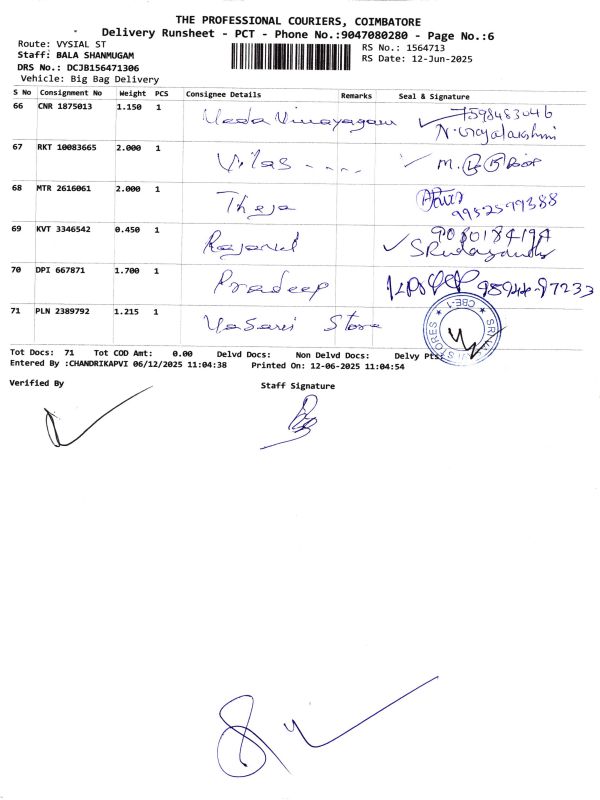 THE PROFESSIONAL COURIERS, COIMBATORE
Delivery Runsheet - PCT - Phone No.:9047080280 - Page No.:6
Route: VYSIAL ST
Staff: BALA SHANMUGAM
RS No.: 1564713
DRS No.: DCJB156471306
RS Date: 12-Jun-2025
Vehicle: Big Bag Delivery
S No Consignment No Weight PCS Consignee Details Remarks Seal & Signature
66 CNR 1875013 1.150 1 7598483046
67 RKT 10083665 2.000 1 Vilas ---- M.
68 MTR 2616061 2.000 1 Theja
9952599388
69 KVT 3346542 0.450 1
70 DPI 667871 1.700 1 Pradeep
71 PLN 2389792 1.215 1 Store
STORES CBE-1
Tot Docs: 71 Tot COD Amt: 0.00 Delvd Docs: Non Delvd Docs: Delvy Pts:
Entered By :CHANDRIKAPVI 06/12/2025 11:04:38 Printed On: 12-06-2025 11:04:54
Verified By Staff Signature